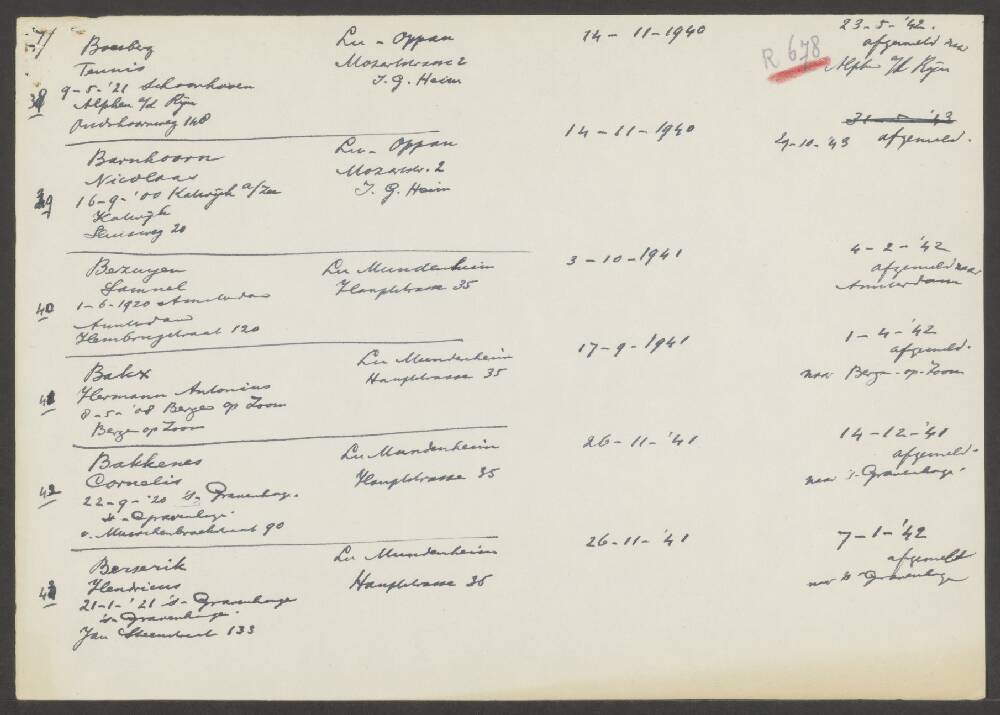 Teunis
9-5-'21 Schoonhoven
38
Alphen a/d Rijn
148
Lu - Oppau
Mozartstrasse 2
I. G. Heim
14-11-1940
R 678
23-5-'42.
afgemeld naar
Alphen a/d Rijn
Barnhoorn
Nicolaas
39
16-9-'00 Katwijk a/Zee
Katwijk
20
Lu - Oppau
Mozartstr. 2
I. G. Heim
14-11-1940
31-5-'43
21-10-'43 afgemeld.
Bezuyen
Samuel
40
1-6-1920 Amsterdam
Amsterdam
Hembrugstraat 120
Lu Mundenheim
Hauptstrasse 35
3-10-1941
4-2-'42
afgemeld naar
Amsterdam
Bakx
41
Hermann Antonius
8-5-'08 Bergen op Zoom
Bergen op Zoom
Lu Mundenheim
Hauptstrasse 35
17-9-1941
1-4-'42
afgemeld.
naar Bergen-op-Zoom
Bakkenes
Cornelis
42
22-9-'20 's-Gravenhage.
's-Gravenhage
v. Musschenbroekstraat 90
Lu Mundenheim
Hauptstrasse 35
26-11-'41
14-12-'41
afgemeld.
naar 's-Gravenhage.
Berserik
Hendricus
43
21-1-'21 's-Gravenhage
's-Gravenhage.
Jan Steenstraat 133
Lu Mundenheim
Hauptstrasse 35
26-11-'41
7-1-'42
afgemeld
naar 's-Gravenhage